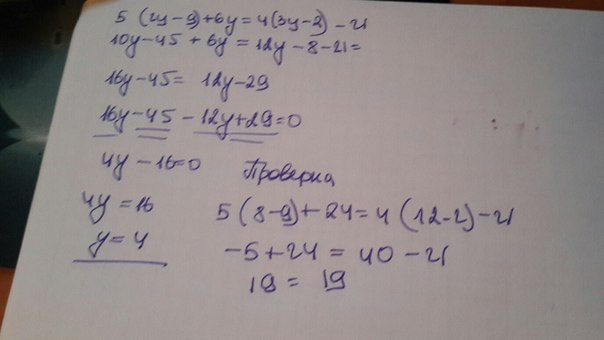 5 (2y-9)+6y=4(3y-2)-21
10y-45+6y=12y-8-21=
16y-45=12y-29
16y-45-12y+29=0
4y-16=0
4y=16
y=4
Проверка
5(8-9)+24=4(12-2)-21
-5+24=40-21
19=19